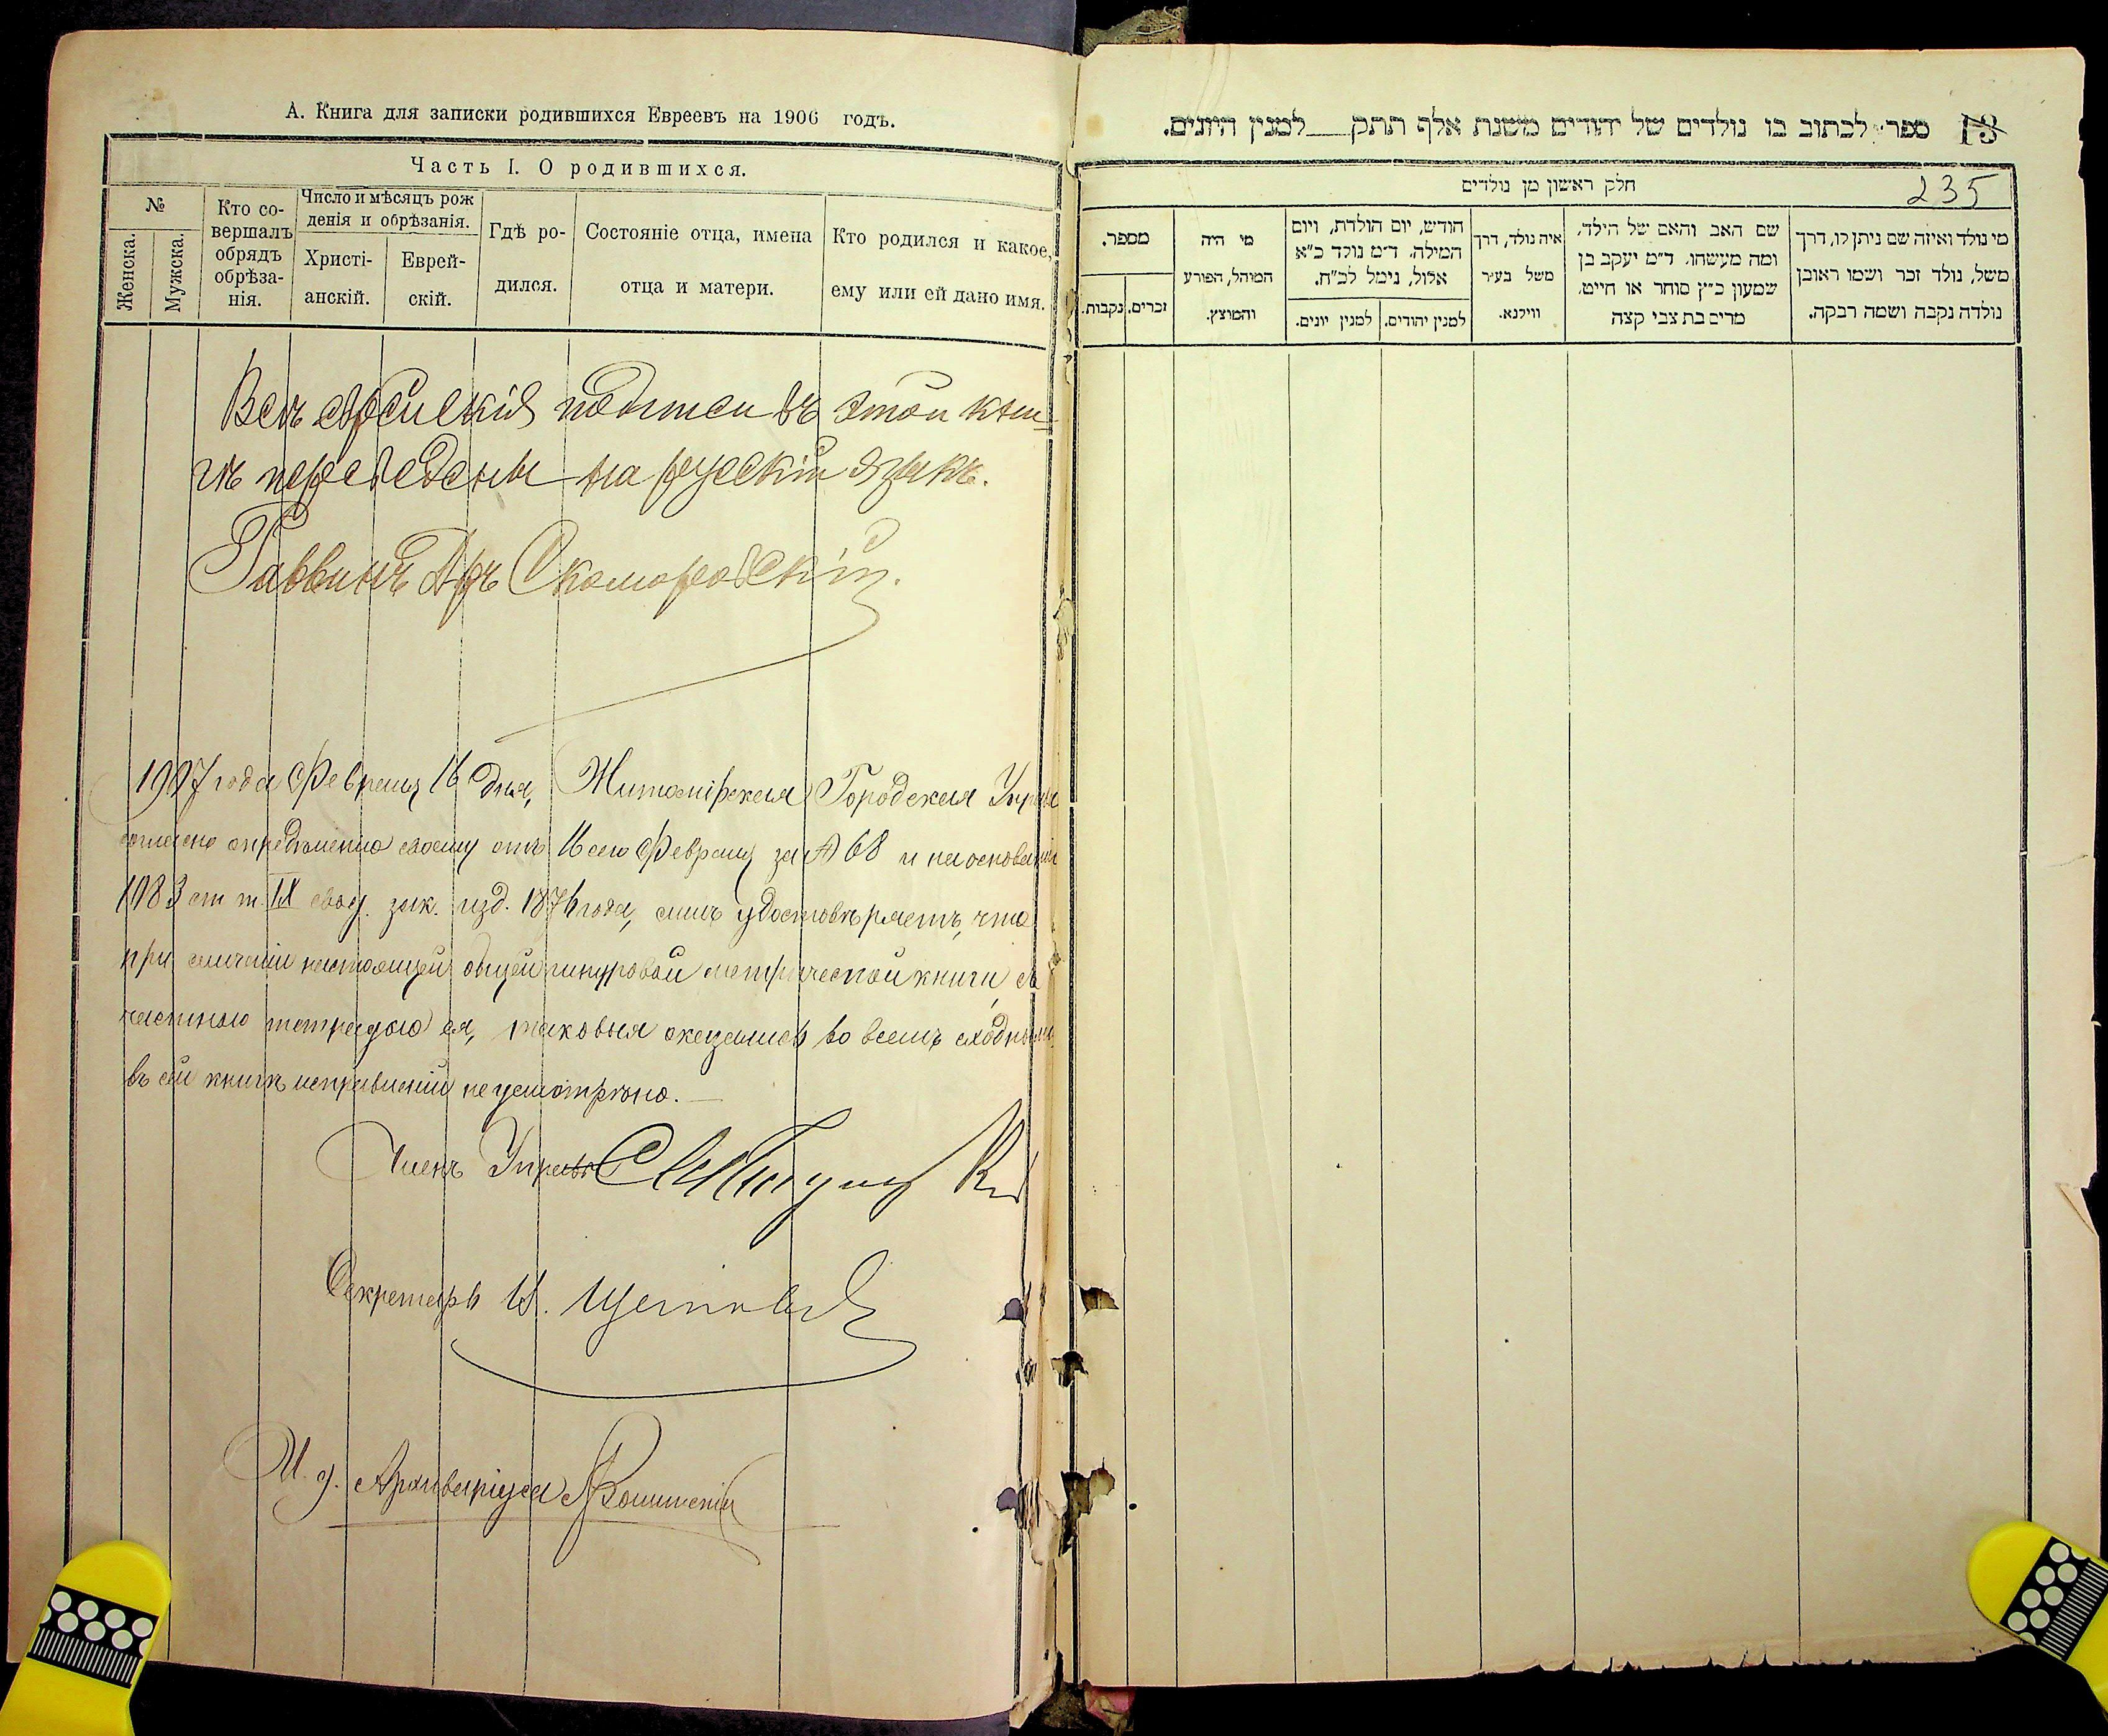 А. Книга для записки родившихся Евреевъ на 1906 годъ.
Часть I. О родившихся.
№
Женска.
Мужска.
Кто со-
вершалъ
обрядъ
обрѣза-
нія.
Число и мѣсяцъ рож
денія и обрѣзанія.
Христі-
анскій.
Еврей-
скій.
Гдѣ ро-
дился.
Состояніе отца, имена
отца и матери.
Кто родился и какое,
ему или ей дано имя.
Всѣ еврейскія подписи въ этой кни-
гѣ переведены на русскій языкъ.
Раввинъ Д-ръ Скоморовскій.
1907 года Февраля 16 дня, Житомірская Городская Управа
согласно опредѣленію своему отъ 16 сего Февраля за № 68 и на основаніи
1083 ст т. IX свод. зак. изд. 1876 года, симъ удостовѣряетъ, что
при сличеніи настоящей общей шнуровой метрической книги съ
частною тетрадью ея, таковыя оказались во всемъ сходными
въ сей книгѣ исправленій не усмотрѣно.
Членъ Управы
Секретарь И.
И. д. Архиваріуса
ספר לכתוב בו נולדים של יהודים משנת אלף תתק למנין היונים.
13
חלק ראשון מן נולדים
235
מי נולד ואיזה שם ניתן לו, דרך
משל, נולד זכר ושמו ראובן
נולדה נקבה ושמה רבקה.
שם האב והאם של הילד,
ומה מעשהו. ד״מ יעקב בן
שמעון כ״ץ סוחר או חייט,
מרים בת צבי קצה
איה נולד, דרך
משל בעיר
ווילנא.
חודש, יום הולדת, ויום
המילה. ד״מ נולד כ״א
אלול, נימל לכ״ח.
למנין יהודים.
למנין יונים.
מי היה
המוהל, הפורע
והמוצץ.
מספר.
זכרים.
נקבות.